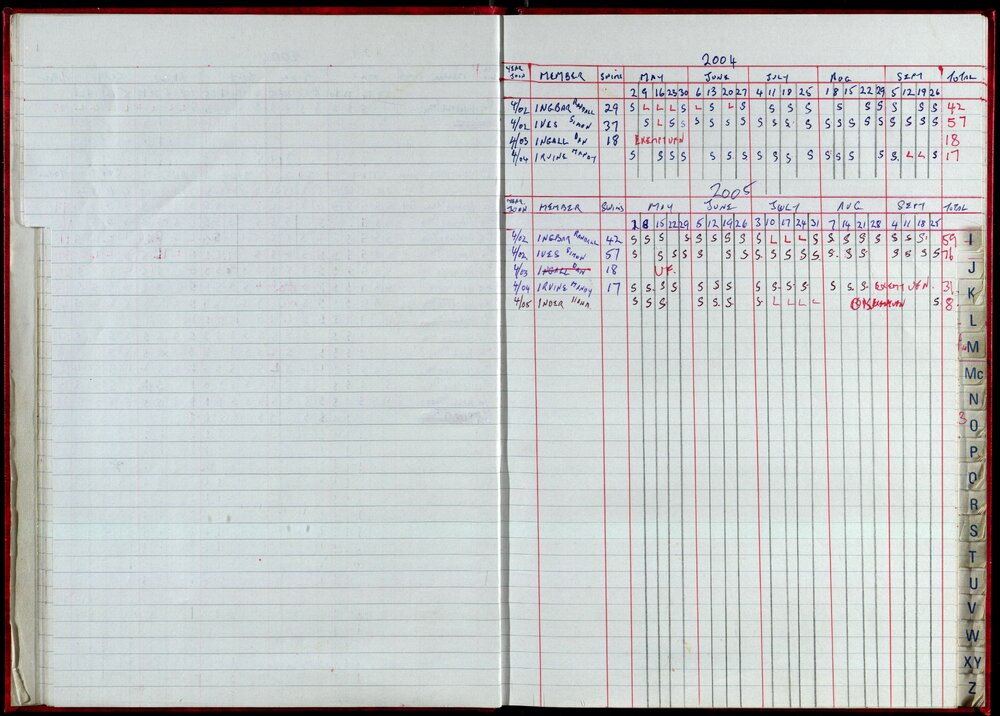 2004
YEAR JOIN MEMBER SWIMS MAY JUNE JULY AUG SEPT TOTAL
2 9 16 23 30 6 13 20 27 4 11 18 25 1 8 15 22 29 5 12 19 26
4/02 INGBAR RANDALL 29 S L L L S L S L S S S S S S S S S S S 42
4/02 IVES SIMON 37 S L S S S S S S S S S S S S S S S S S S S 57
4/03 INGALL DAN 18 EXEMPT 18
4/04 IRVINE MANDY S S S S S S S S S S S S S S S S S L L S 17
2005
YEAR JOIN MEMBER SWIMS MAY JUNE JULY AUG SEPT TOTAL
1 8 15 22 29 5 12 19 26 3 10 17 24 31 7 14 21 28 4 11 18 25
4/02 INGBAR RANDALL 42 S S S S S S S S S L L L S S S S S S S S 59
4/02 IVES SIMON 57 S S S S S S S S S S S S S S S S S S S S 76
4/03 INGALL DAN 18 UF.
4/04 IRVINE MANDY 17 S S S S S S S S S S S S S S EXEMPT 31
4/05 INDER ILONA S S S S S S S L L L L S 8
I
J
K
L
M
Mc
N
3
O
P
Q
R
S
T
U
V
W
XY
Z